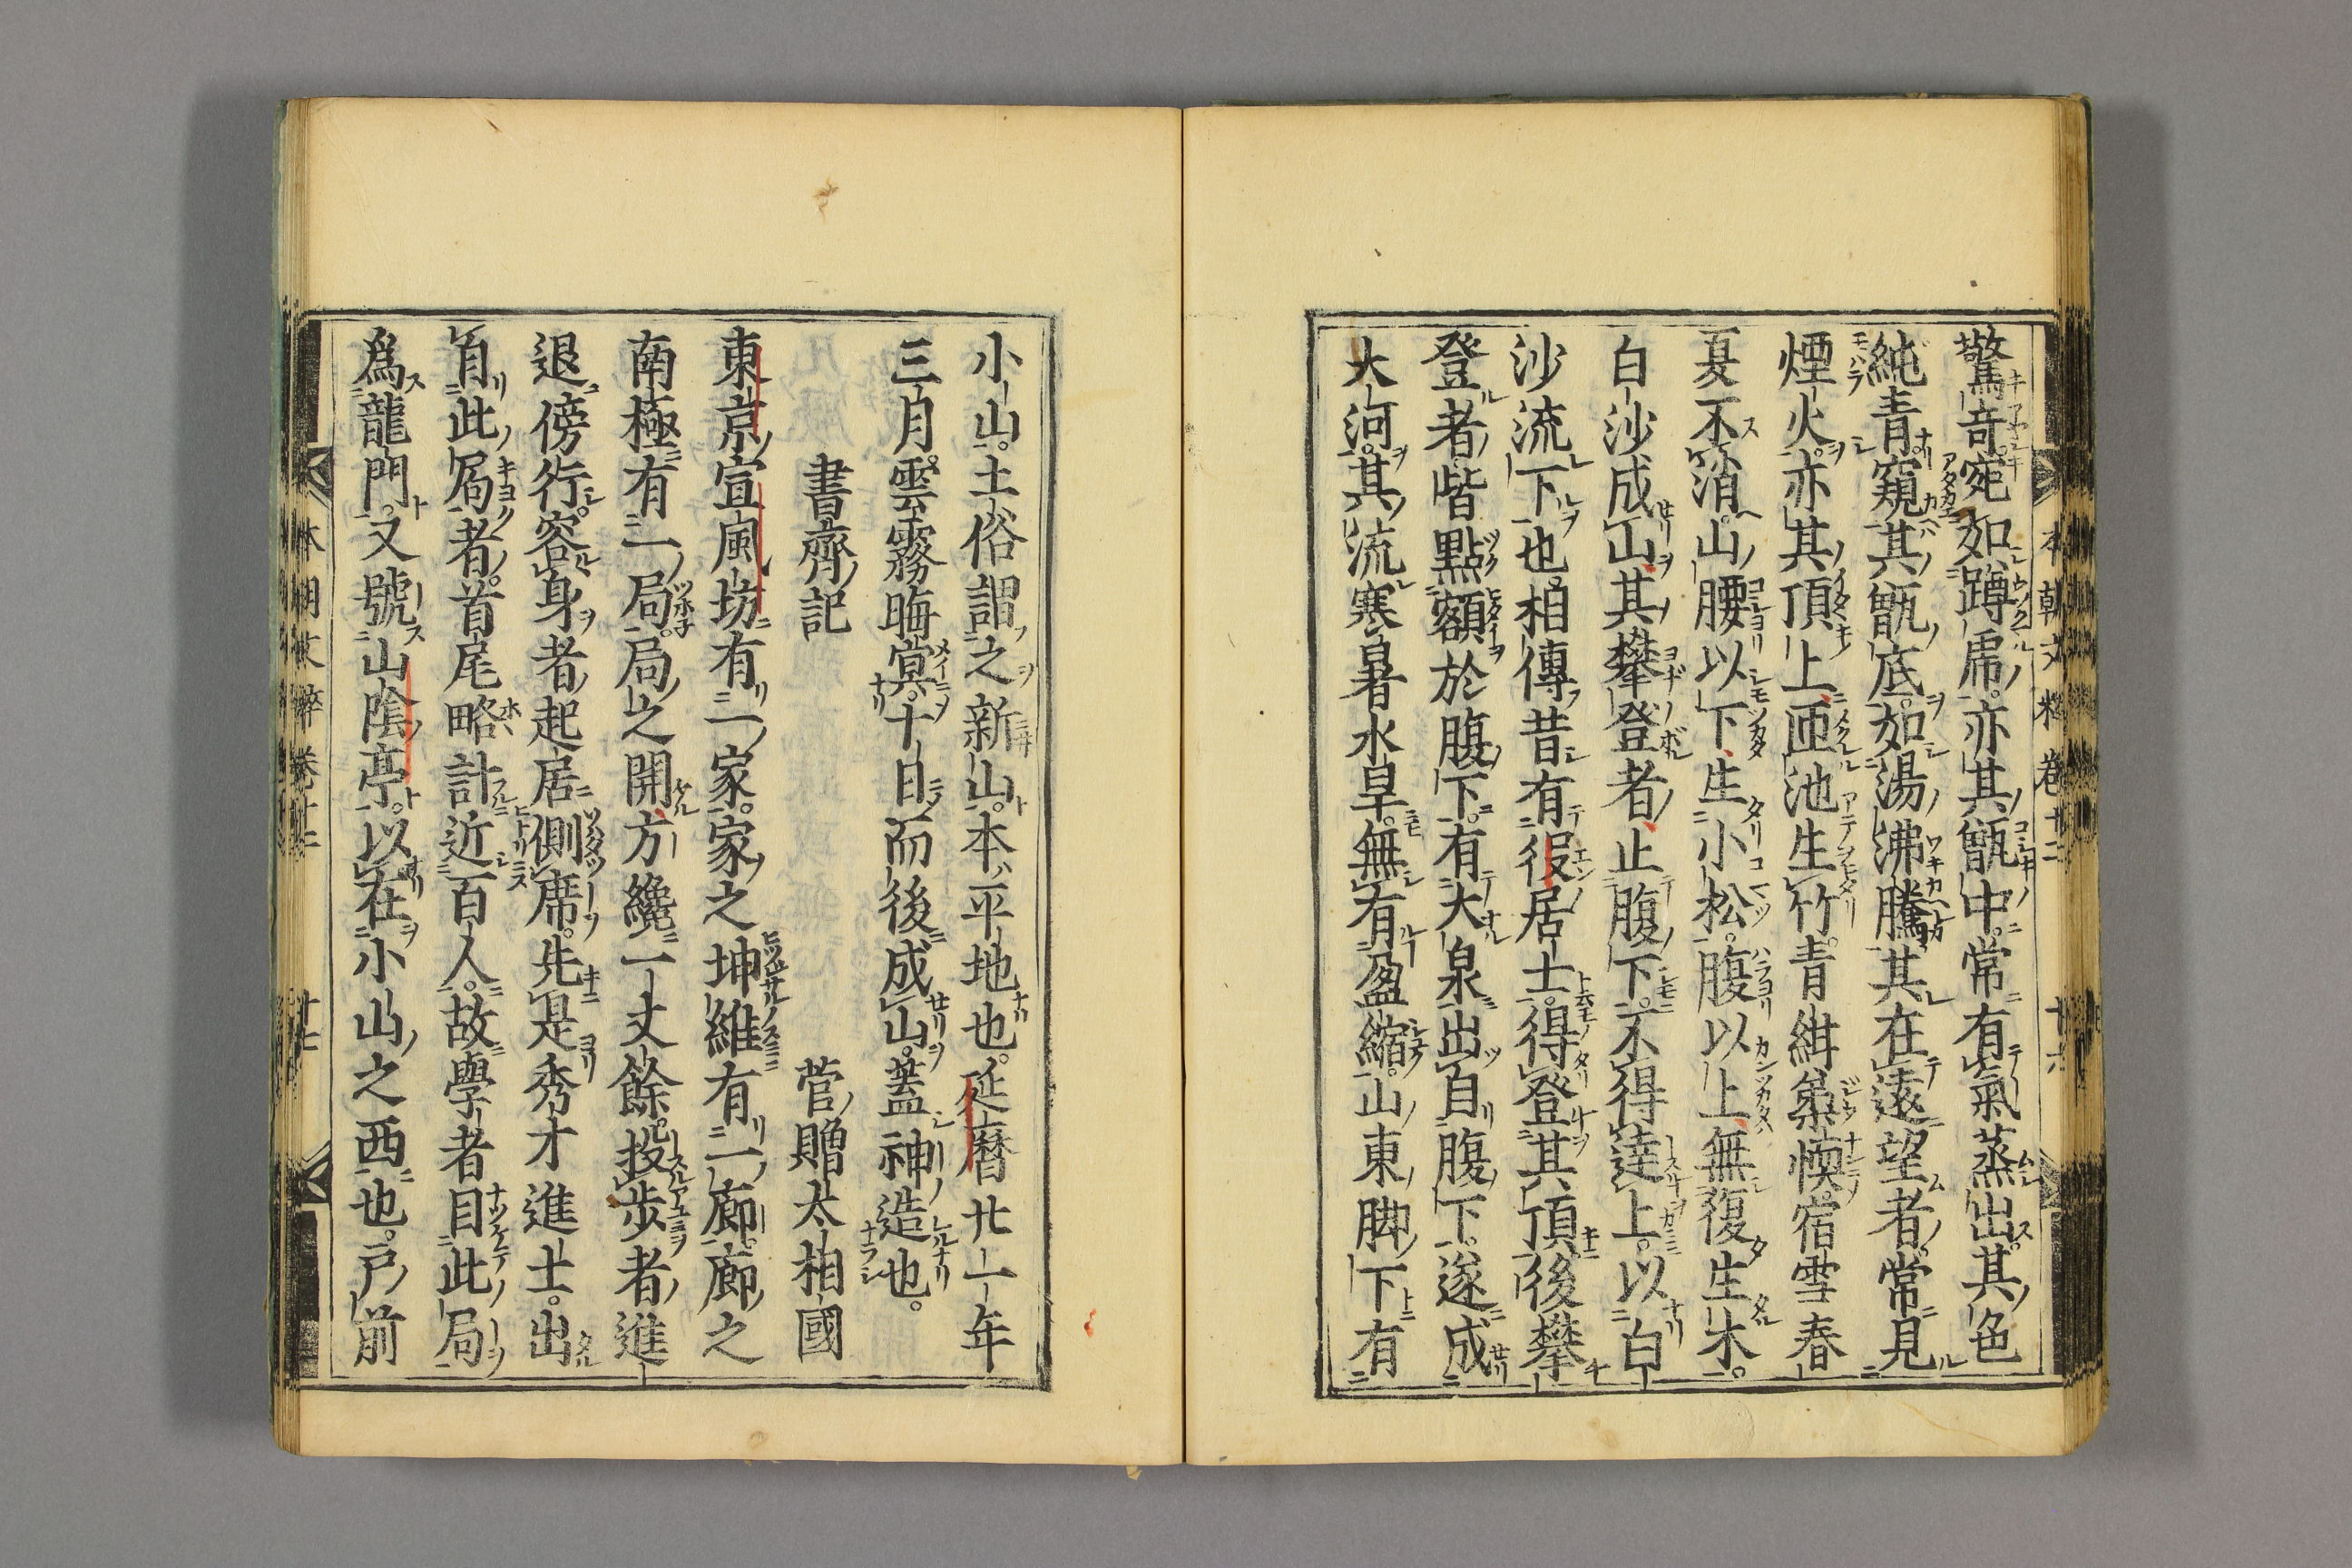 驚奇。宛如蹲虎。亦其甑中。常有氣蒸出。其色
純青。窺其甑底。如湯沸騰。其在遠望者。常見
煙火。亦其頂上。匝池生竹。青紺柔愞。宿雪春
夏不消。山腰以下。生小松。腹以上。無復生木。
白沙成山。其攀登者。止腹下。不得達上。以白
沙流下也。相傳昔有役居士。得登其頂。後攀
登者。皆點額於腹下。有大泉。出自腹下。遂成
大河。其流寒暑水旱。無有盈縮。山東脚下。有
本朝文粹卷十二 十六
小山。土俗謂之新山。本平地也。延曆廿一年
三月。雲霧晦冥。十日而後成山。蓋神造也。
書齊記 菅贈太相國
東京宣風坊有一家。家之坤維有一廊。廊之
南極有一局。局之開方纔一丈餘。投步者進
退傍行。容身者起居側席。先是秀才進士。出
自此局者。首尾略計近百人。故學者目此局
爲龍門。又號山陰亭。以在小山之西也。戸前
本朝文粹卷十二 十七